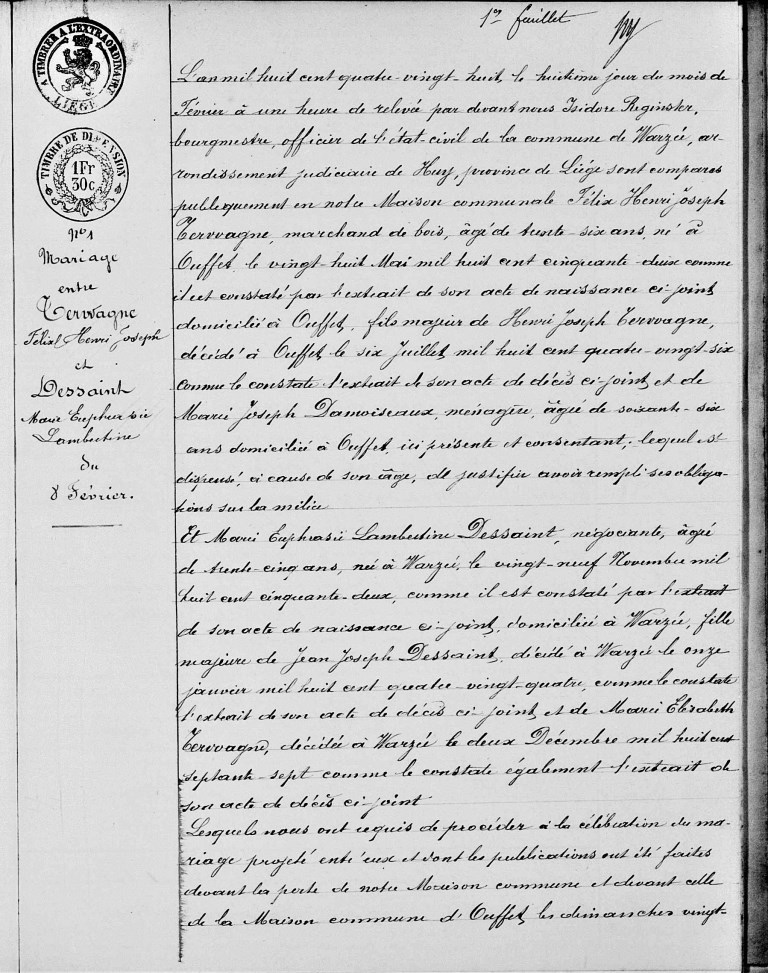 1er feuillet
A TIMBRER A L'EXTRAORDINAIRE
LIÉGE
TIMBRE DE DIMENSION
1Fr
30c
No 1
Mariage
entre
Tervvagne
Félix Henri Joseph
et
Dessaint
Marie Euphrasie
Lambertine
du
8 Février.
L'an mil huit cent quatre-vingt-huit, le huitième jour du mois de
Février à une heure de relevée par devant nous Isidore Reginster,
bourgmestre, officier de l'état-civil de la commune de Warzée, ar-
rondissement judiciaire de Huy, province de Liége sont comparus
publiquement en notre Maison communale Félix Henri Joseph
Tervvagne, marchand de bois, âgé de trente-six ans, né à
Ouffet, le vingt-huit Mai mil huit cent cinquante-deux comme
il est constaté par l'extrait de son acte de naissance ci-joint,
domicilié à Ouffet, fils majeur de Henri Joseph Tervvagne,
décédé à Ouffet le six Juillet mil huit cent quatre-vingt-six
comme le constate l'extrait de son acte de décès ci-joint, et de
Marie Joseph Damoiseaux, ménagère, âgée de soixante-six
ans domiciliée à Ouffet, ici présente et consentant; lequel est
dispensé, à cause de son âge, de justifier avoir rempli ses obliga-
tions sur la milice
Et Marie Euphrasie Lambertine Dessaint, négociante, âgée
de trente-cinq ans, née à Warzée, le vingt-neuf Novembre mil
huit cent cinquante-deux, comme il est constaté par l'extrait
de son acte de naissance ci-joint, domiciliée à Warzée, fille
majeure de Jean Joseph Dessaint, décédé à Warzée le onze
janvier mil huit cent quatre-vingt-quatre, comme le constate
l'extrait de son acte de décès ci-joint, et de Marie Elisabeth
Tervvagne, décédée à Warzée le deux Décembre mil huit cent
septante-sept comme le constate également l'extrait de
son acte de décès ci-joint
Lesquels nous ont requis de procéder à la célébration du ma-
riage projeté entre eux et dont les publications ont été faites
devant la porte de notre Maison commune et devant celle
de la Maison commune d'Ouffet, les dimanches vingt-